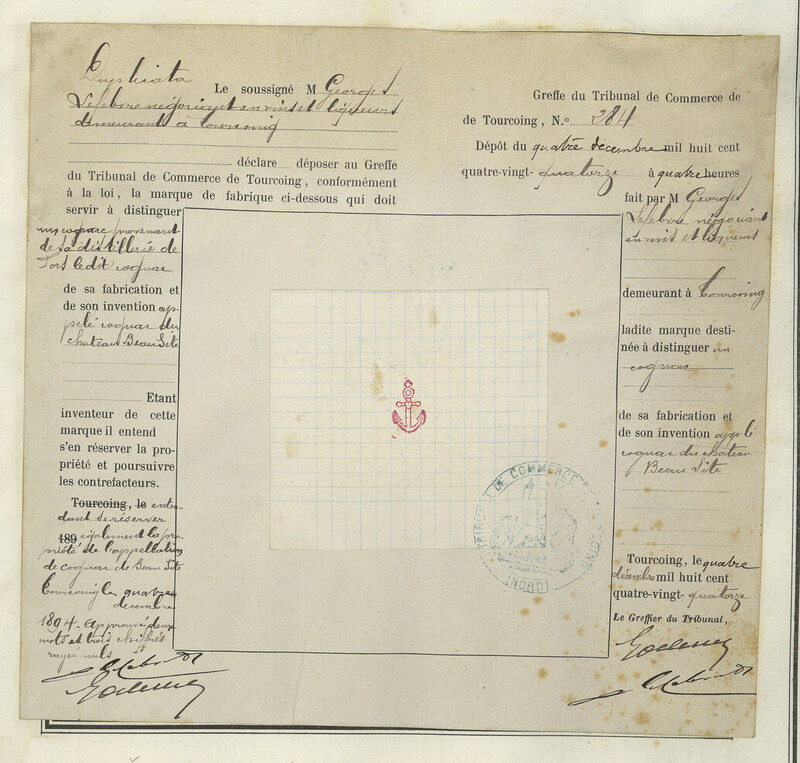 Duplicata
Le soussigné M Georges
Lefebvre négociant en vins et liqueurs
demeurant à Tourcoing
déclare déposer au Greffe
du Tribunal de Commerce de Tourcoing, conformément
à la loi, la marque de fabrique ci-dessous qui doit
servir à distinguer
un cognac provenant
de sa distillerie de
ledit cognac
de sa fabrication et
de son invention ap-
pelé cognac du
chateau Beau Site
Etant
inventeur de cette
marque il entend
s'en réserver la pro-
priété et poursuivre
les contrefacteurs.
Tourcoing, le enten-
dant se réserver
189 également la pro-
priété de l'appellation
de cognac de Beau Site
Tourcoing le quatre
décembre
1894. approuvé deux
mots et trois chiffres
rayés nuls
Greffe du Tribunal de Commerce de
de Tourcoing, N.º 284
Dépôt du quatre décembre mil huit cent
quatre-vingt-quatorze à quatre heures
fait par M Georges
Lefebvre négociant
en vins et liqueurs
demeurant à Tourcoing
ladite marque desti-
née à distinguer un
cognac
de sa fabrication et
de son invention appelé
cognac du chateau
Beau Site
Tourcoing, le quatre
décembre mil huit cent
quatre-vingt-quatorze
Le Greffier du Tribunal,
TRIBUNAL DE COMMERCE
(NORD)